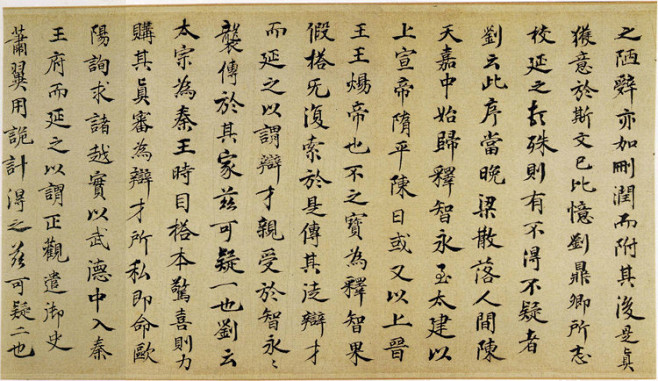 之陋辭亦如刪潤而附其後是真
獲意於斯文已比憶劉鼎卿所志
校延之尤殊則有不得不疑者
劉云此序當晚梁散落人間陳
天嘉中始歸釋智永至太建以
上宣帝隋平陳日或又以上晉
王王煬帝也不之寶為釋智果
假搨旡復索於是傳其徒辯才
而延之以謂辯才親受於智永〻
襲傳於其家茲可疑一也劉云
太宗為秦王時目搨本驚喜則力
購其真審為辯才所私即命歐
陽詢求諸越實以武德中入秦
王府而延之以謂正觀遣御史
蕭翼用詭計得之茲可疑二也